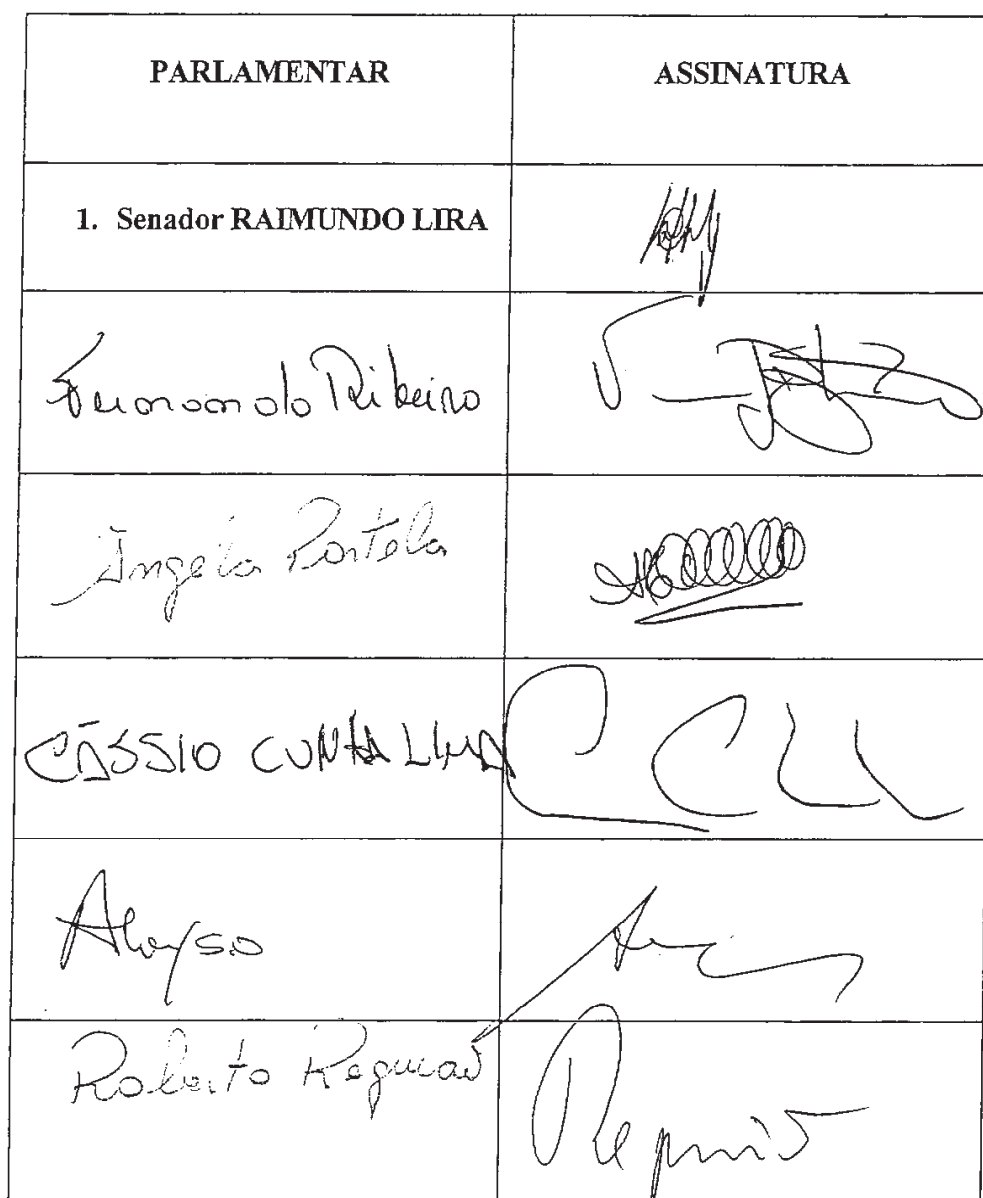 PARLAMENTAR ASSINATURA
1. Senador RAIMUNDO LIRA
Fernando Ribeiro
Ângela Portela
CÁSSIO CUNHA LIMA CCLL
Aloysio
Roberto Requião Requião